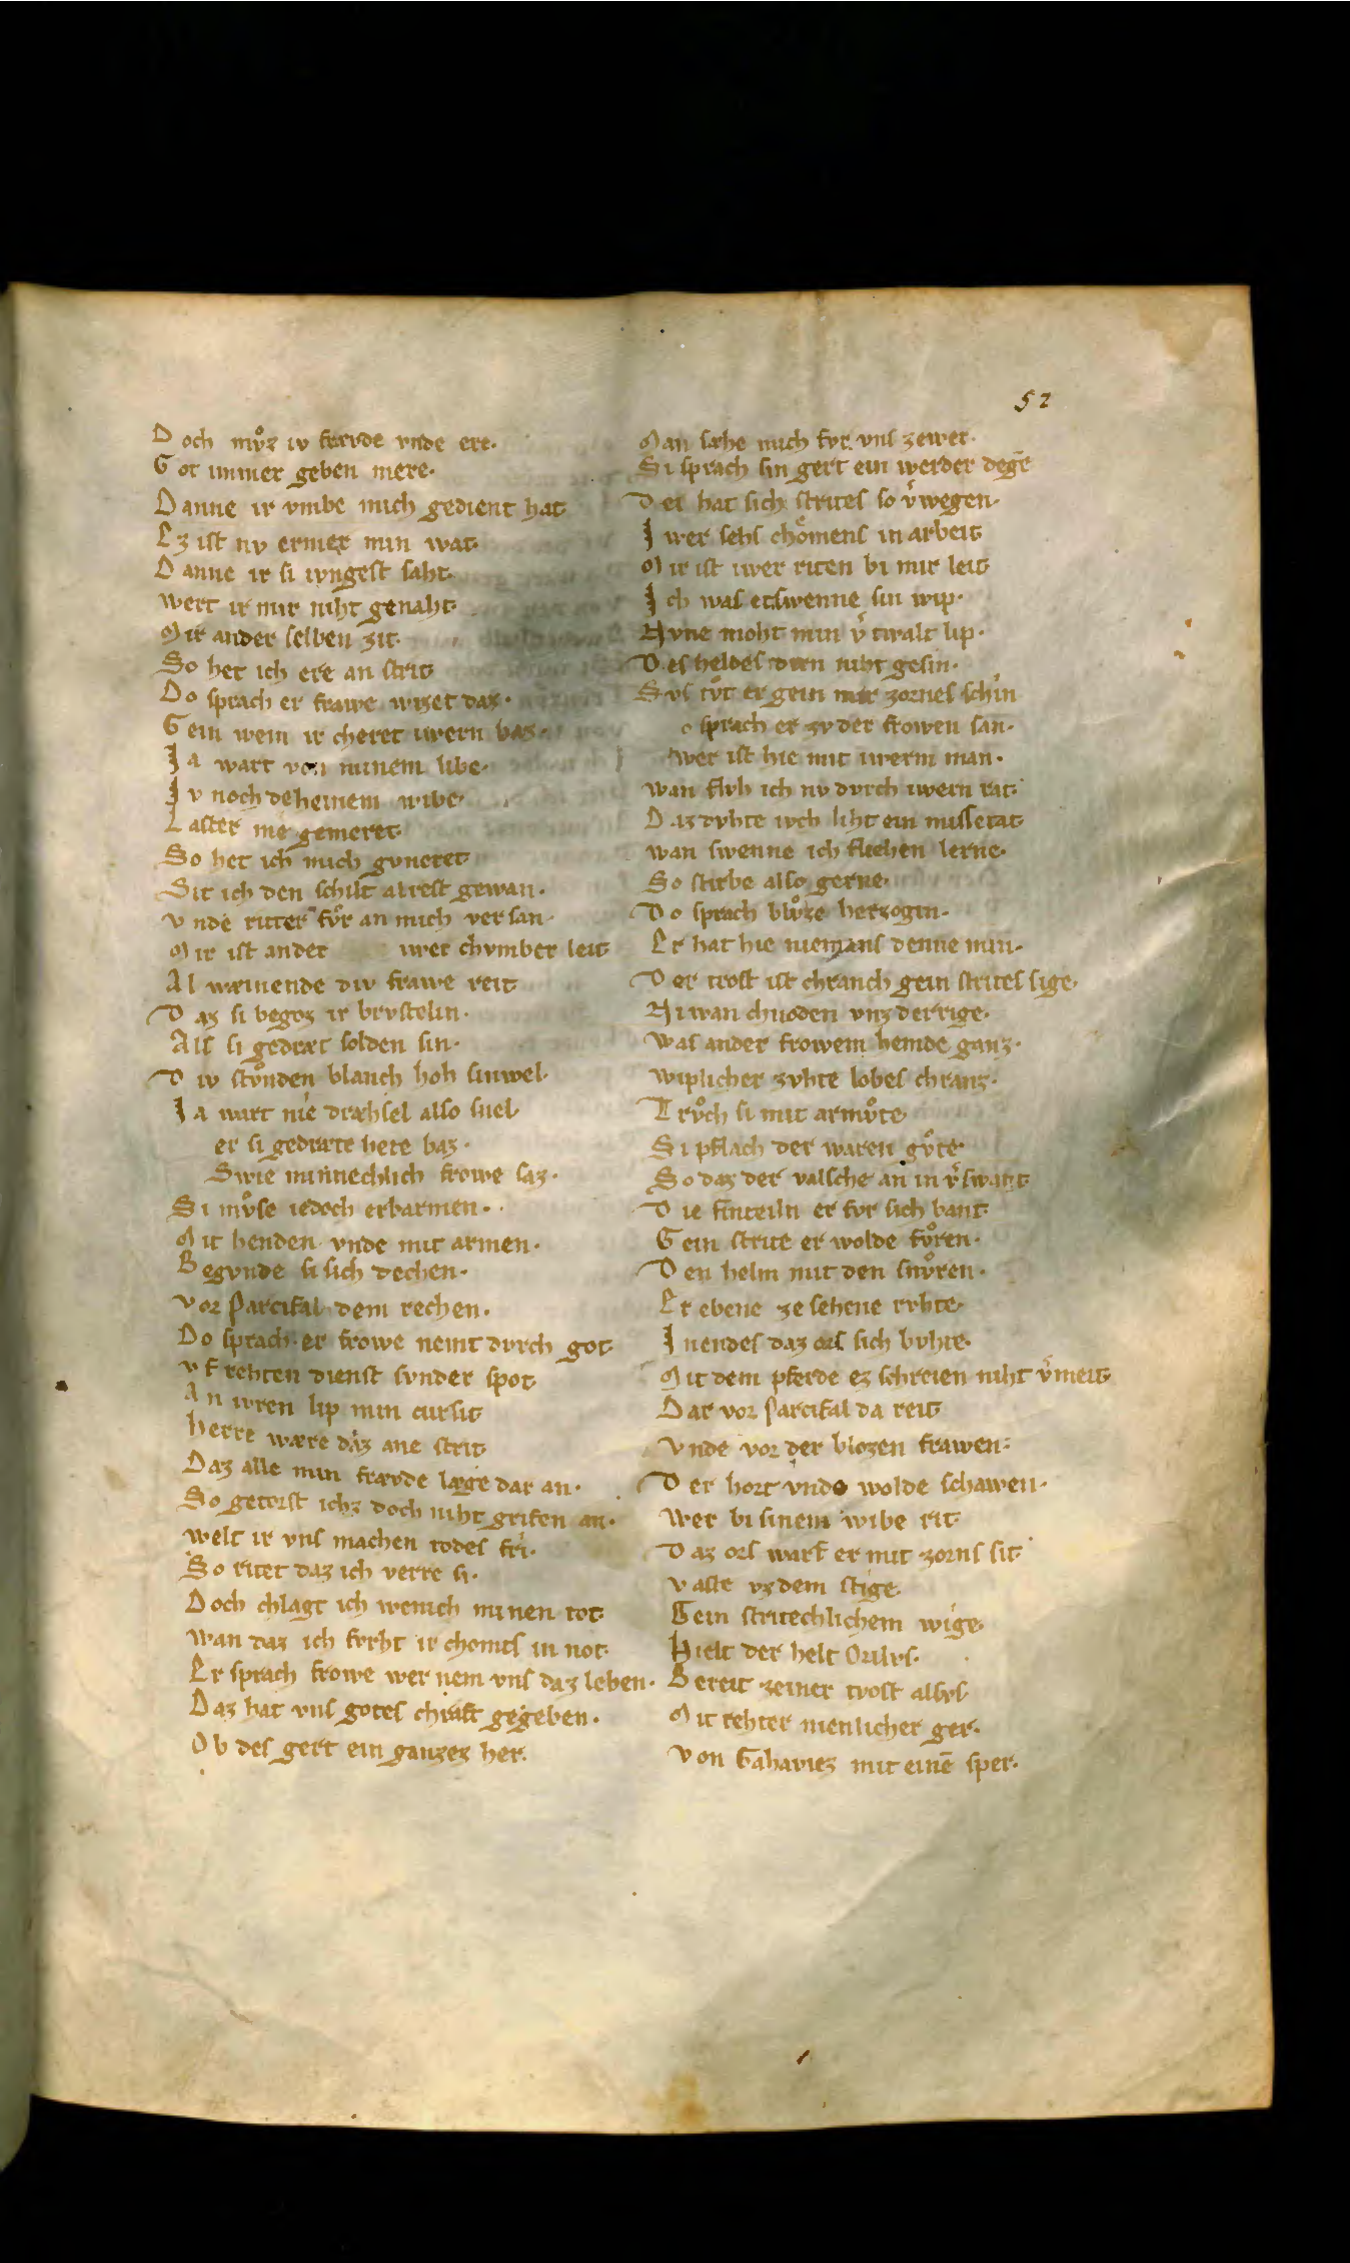 52
Doch mvͦz iv frævde vnde ere·
Got immer geben mere·
Danne ir vmbe mich gedient hat
Ez ist nv ermer min wat·
Danne ir si ivngest saht·
wert ir mir niht genaht·
Mir ander selben zit·
So het ich ere an strit
Do sprach er frawe wizet daz·
Gein wem ir cheret iwern haz·
Ia wart von minem libe·
Iv noch deheinem wibe·
Laster nie gemeret·
So het ich mich gvneret
Sit ich den schilt alrest gewan·
vnde ritter fvͦr an mich versan·
Mir ist ander iwer chvmber leit
Al wæinende div frawe reit
Daz si begoz ir brvstelin·
Als si gedræt solden sin·
Div stvͦnden blanch hoh sinwel·
Ia wart nie dræhsel also snel·
er si gedræte hete baz·
Swie minnechlich frowe saz·
Si mvͦse iedoch erbarmen·
Mit henden vnde mit armen·
Begvnde si sich dechen·
vor Parcifal dem rechen·
Do sprach er frowe nemt dvrch got·
vf rehten dienst svnder spot
An iwren lip min cursit
herre wære daz ane strit·
Daz alle min frævde læge dar an·
So getorst ichz doch niht grifen an·
welt ir vns machen todes fri·
So ritet daz ich verre si·
Doch chlagt ich wenich minen tot·
wan daz ich fvrht ir chomts in not·
Er sprach frowe wer nem vns daz leben·
Daz hat vns gotes chraft gegeben·
Ob des gert ein ganzez her·
Man sæhe mich fvr vns zewer·
Si sprach sin gert ein werder dege̅
Der hat sich strites so v͛wegen·
Iwer sehs chͦomens in arbeit
Mir ist iwer riten bi mir leit
Ich was etswenne sin wip·
Nvne moht min v͛twalt lip·
Des heldes dirn niht gesin·
Svs tvͦt er gein mir zornes schin
o sprach er zv der frowen san·
wer ist hie mit iwerm man·
wan flvh ich nv dvrch iwern rat·
Daz dvhte iwch liht ein missetat
wan swenne ich fliehen lerne·
So stirbe also gerne·
Do sprach blvͦze herzogin·
Er hat hie niemans denne min·
Der trost ist chranch gein strites sige·
Niwan chnoden vnz der rige·
was ander frowem hemde ganz·
wiplicher zvhte lobes chranz·
Trvͦch si mit armvͦte
Si pflach der waren gvͦte·
So daz der valsche an in v͛swant
Die finteiln er fvr sich bant·
Gein strite er wolde fvͦren·
Den helm mit den snvͦren·
Er ebene ze sehene rvhte·
Inendes daz ors sich bvhte·
Mit dem pferde ez schreien niht v͛meit
Dar vor Parcifal da reit
Vnde vor der blozen frawen·
Der hort vnde wolde schawen·
wer bi sinem wibe rit·
Daz ors warf er mit zorns sit
vaste vz dem stige·
Gein stritechlichem wige
Hielt der helt Orilvs·
Bereit zeiner tyost alsvs·
Mit rehter menlicher ger·
von Gahaviez mit eine̅ sper·